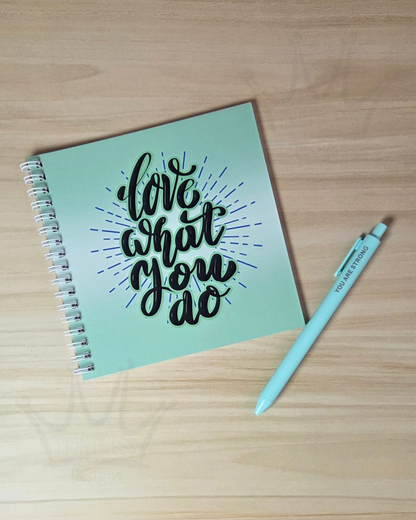 love
what
you
do
YOU ARE STRONG